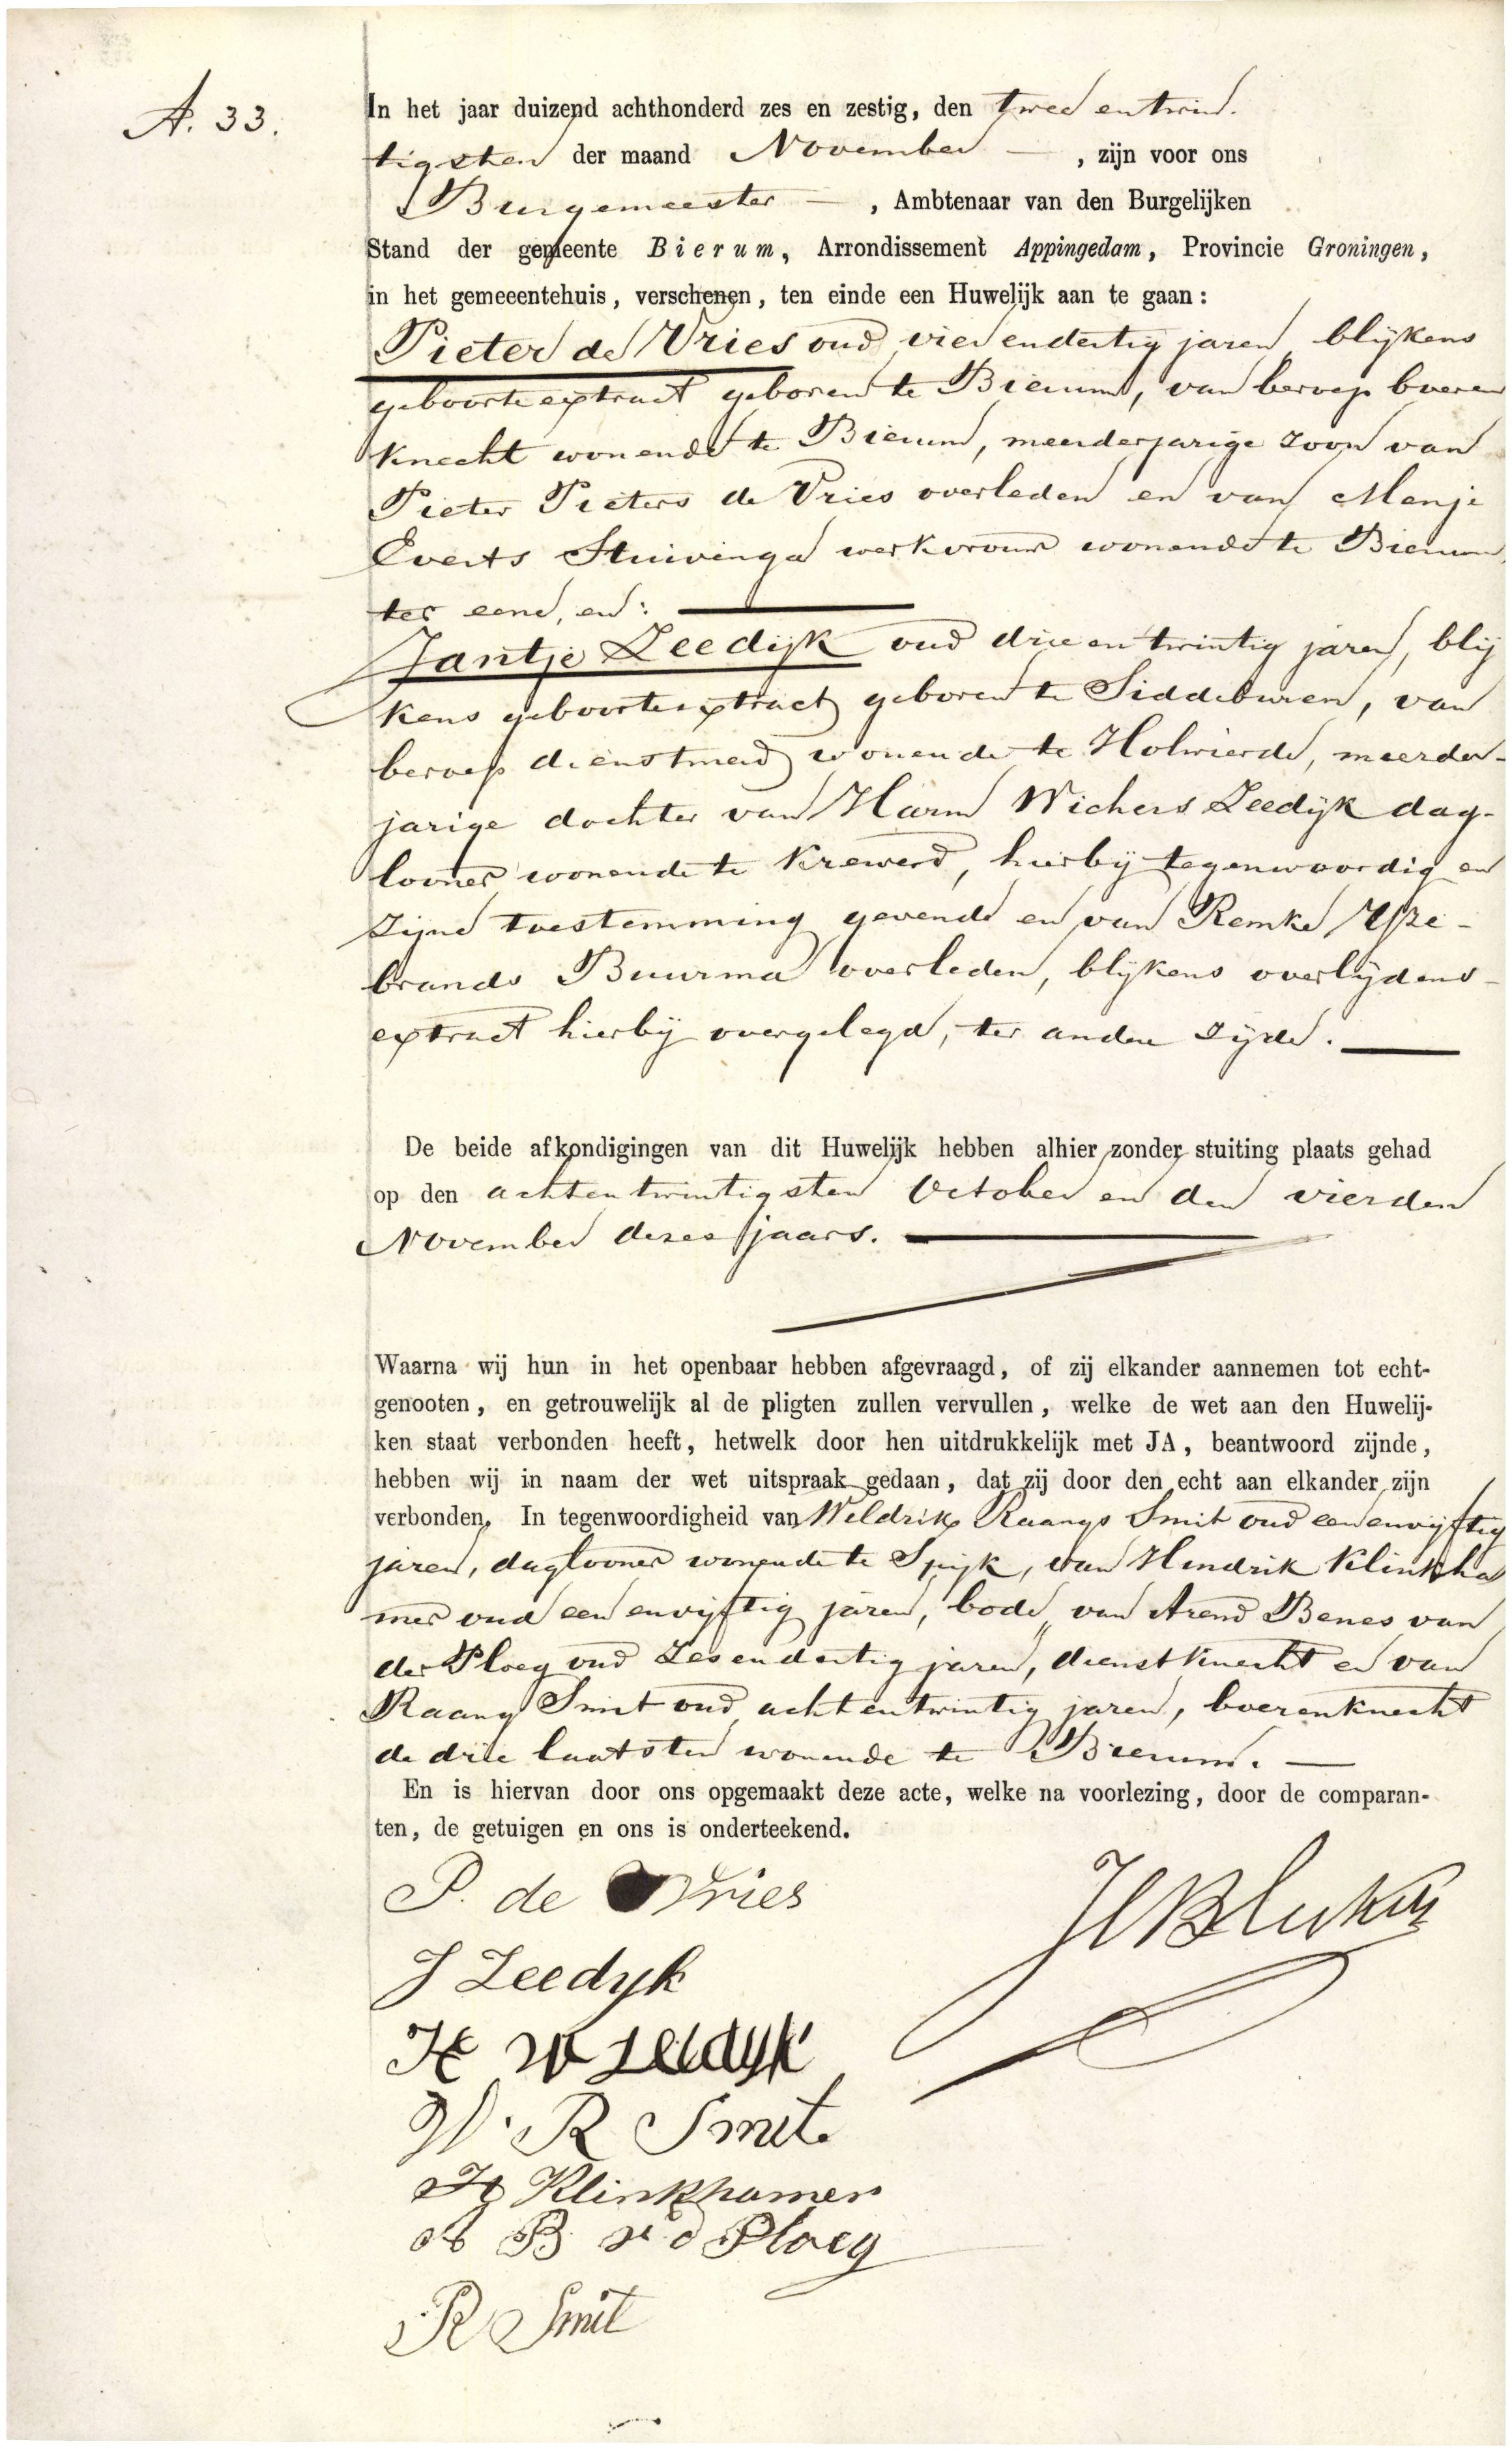 A. 33.
In het jaar duizend achthonderd zes en zestig, den twee en twin-
tigsten der maand November —, zijn voor ons
Burgemeester —, Ambtenaar van den Burgelijken
Stand der gemeente Bierum, Arrondissement Appingedam, Provincie Groningen,
in het gemeeentehuis, verschenen, ten einde een Huwelijk aan te gaan:
Pieter de Vries oud vier en dertig jaren, blijkens
geboorte extract geboren te Bierum, van beroep boeren
knecht wonende te Bierum, meerderjarige zoon van
Pieter Pieters de Vries overleden en van Menje
Everts Stuivinga werkvrouw wonende te Bierum,
ter eene, en:
Jantje Zeedijk oud drie en twintig jaren, blij
kens geboorte extract geboren te Siddeburen, van
beroep dienstmeid wonende te Holwierde, meerder-
jarige dochter van Harm Wichers Zeedijk dag-
looner wonende te Krewerd, hierbij tegenwoordig en
zijne toestemming gevende en van Remke IJsze-
brands Buurma overleden, blijkens overlijdens-
extract hierbij overgelegd, ter andere zijde.
De beide afkondigingen van dit Huwelijk hebben alhier zonder stuiting plaats gehad
op den achtentwintigsten October en den vierden
November dezes jaars.
Waarna wij hun in het openbaar hebben afgevraagd, of zij elkander aannemen tot echt-
genooten, en getrouwelijk al de pligten zullen vervullen, welke de wet aan den Huwelij-
ken staat verbonden heeft, hetwelk door hen uitdrukkelijk met JA, beantwoord zijnde,
hebben wij in naam der wet uitspraak gedaan, dat zij door den echt aan elkander zijn
verbonden. In tegenwoordigheid van Weldrik Raangs Smit oud een en vijftig
jaren, daglooner wonende te Spijk, van Hendrik Klinkha
mer oud een en vijftig jaren, bode, van Arend Benes van
der Ploeg oud zes en dertig jaren, dienstknecht en van
Raang Smit oud acht en twintig jaren, boerenknecht
de drie laatsten wonende te Bierum.
En is hiervan door ons opgemaakt deze acte, welke na voorlezing, door de comparan-
ten, de getuigen en ons is onderteekend.
P. de Vries
J Zeedyk
H W Zeedyk
W. R Smit.
H Klinkhamer
A B v d Ploeg
R Smit